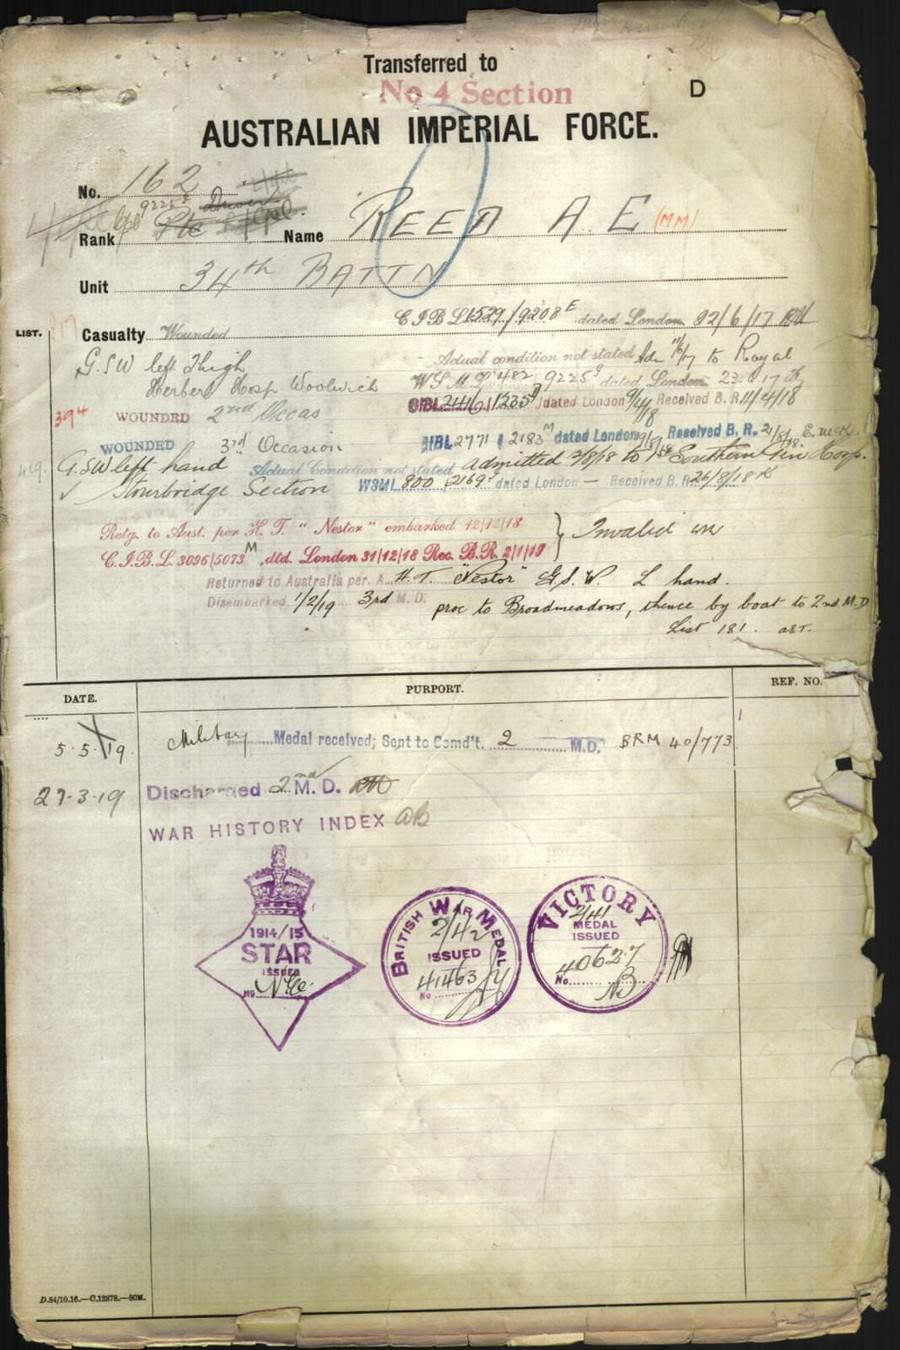 Transferred to
No 4 Section
D
AUSTRALIAN IMPERIAL FORCE.
No. 162
Rank Pte Driver Name REED A. E (MM)
Unit 34th BATTN
LIST.
Casualty Wounded C.I.B.L 1529/9208E dated London 22/6/17
G.S.W left Thigh Actual condition not stated Adm to Royal
Herbert Hosp Woolwich W.S.M.L 482 9225 dated London 23.6.17
394 WOUNDED 2nd Occas CIBL 2416/1235 dated London 9/4/18 Received B. R. 11/4/18
WOUNDED 3rd Occasion CIBL 2771 2183M dated London Received B. R.
429 G.S.W left hand Actual Condition not stated admitted 2/8/18 to 1st Southern Gen Hosp.
Stourbridge Section WSML 800 2169 dated London — Received B.R. 26/8/18 K
Retg. to Aust. per H. T. "Nestor" embarked 12/12/18
Invalid
C.I.B.L. 3096/5073M, dtd. London 31/12/18 Rec. B.R. 2/1/19
Returned to Australia per. H.T. "Nestor" G.S.W. L hand.
Disembarked 1/2/19 3rd M.D. proc to Broadmeadows, thence by boat to 2nd M.D
List 181.
DATE. PURPORT. REF. NO.
5.5.19 Military Medal received; Sent to Comd't. 2 M.D. BRM 40/773
27.3.19 Discharged 2nd M. D.
WAR HISTORY INDEX
1914/15
STAR
ISSUED
No.
BRITISH WAR MEDAL
2/42
ISSUED
41463
No
VICTORY
2/41
MEDAL
ISSUED
40627
No.
D.84/10.16.—C.12878.—50M.